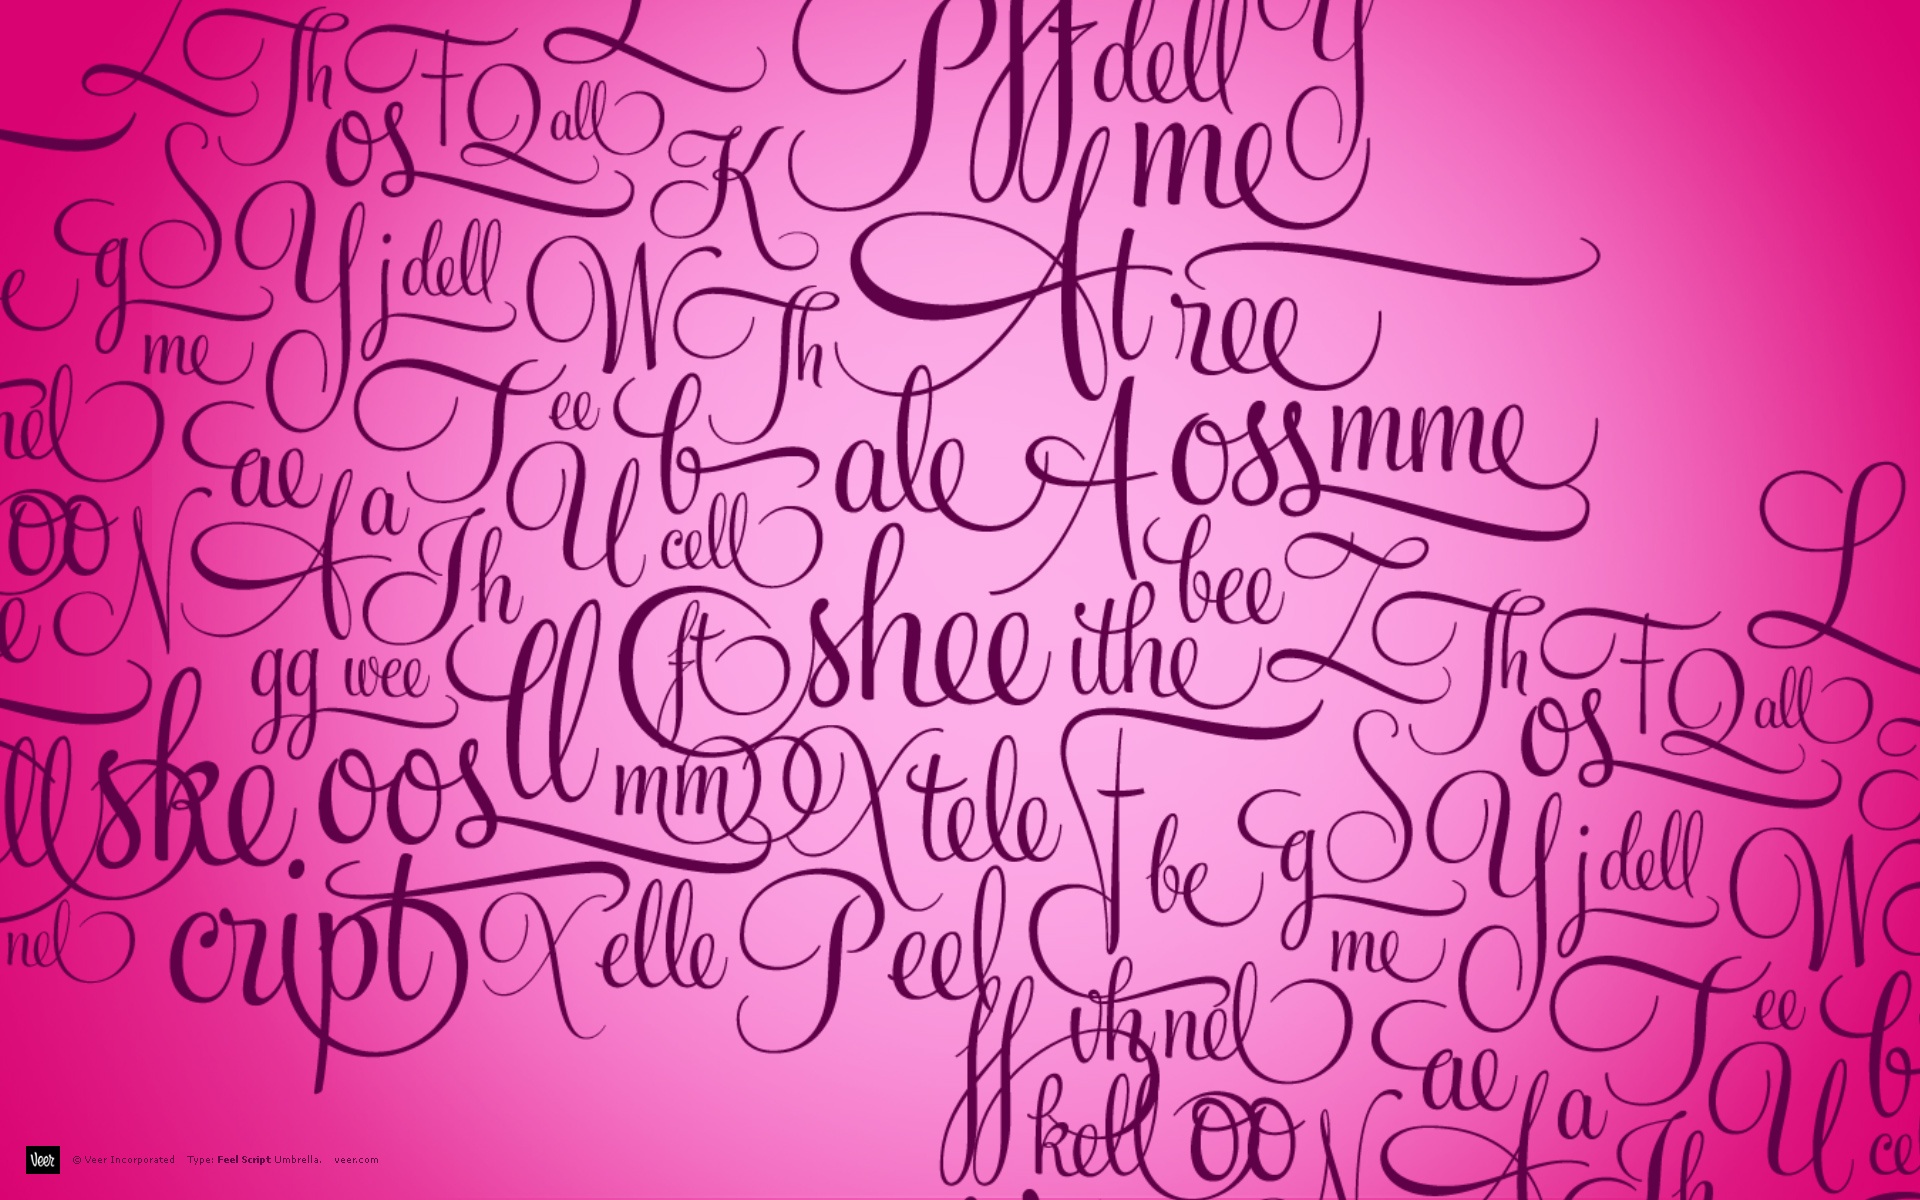 L Th F Q all L Pff dell Y
os K me
g S Y j dell W Th At ree
e me T ee b ale A oss mme
nel ae a U cell bee L
oo N A Th ft shee ithe Z Th F Q all
e gg wee ll os
ll ske. oos mm X tele F be g S Y j dell W
nel cript X elle P eel me T ee b
ff th nel ae a U ce
kell oo N A Th
Veer © Veer Incorporated Type: Feel Script Umbrella. veer.com